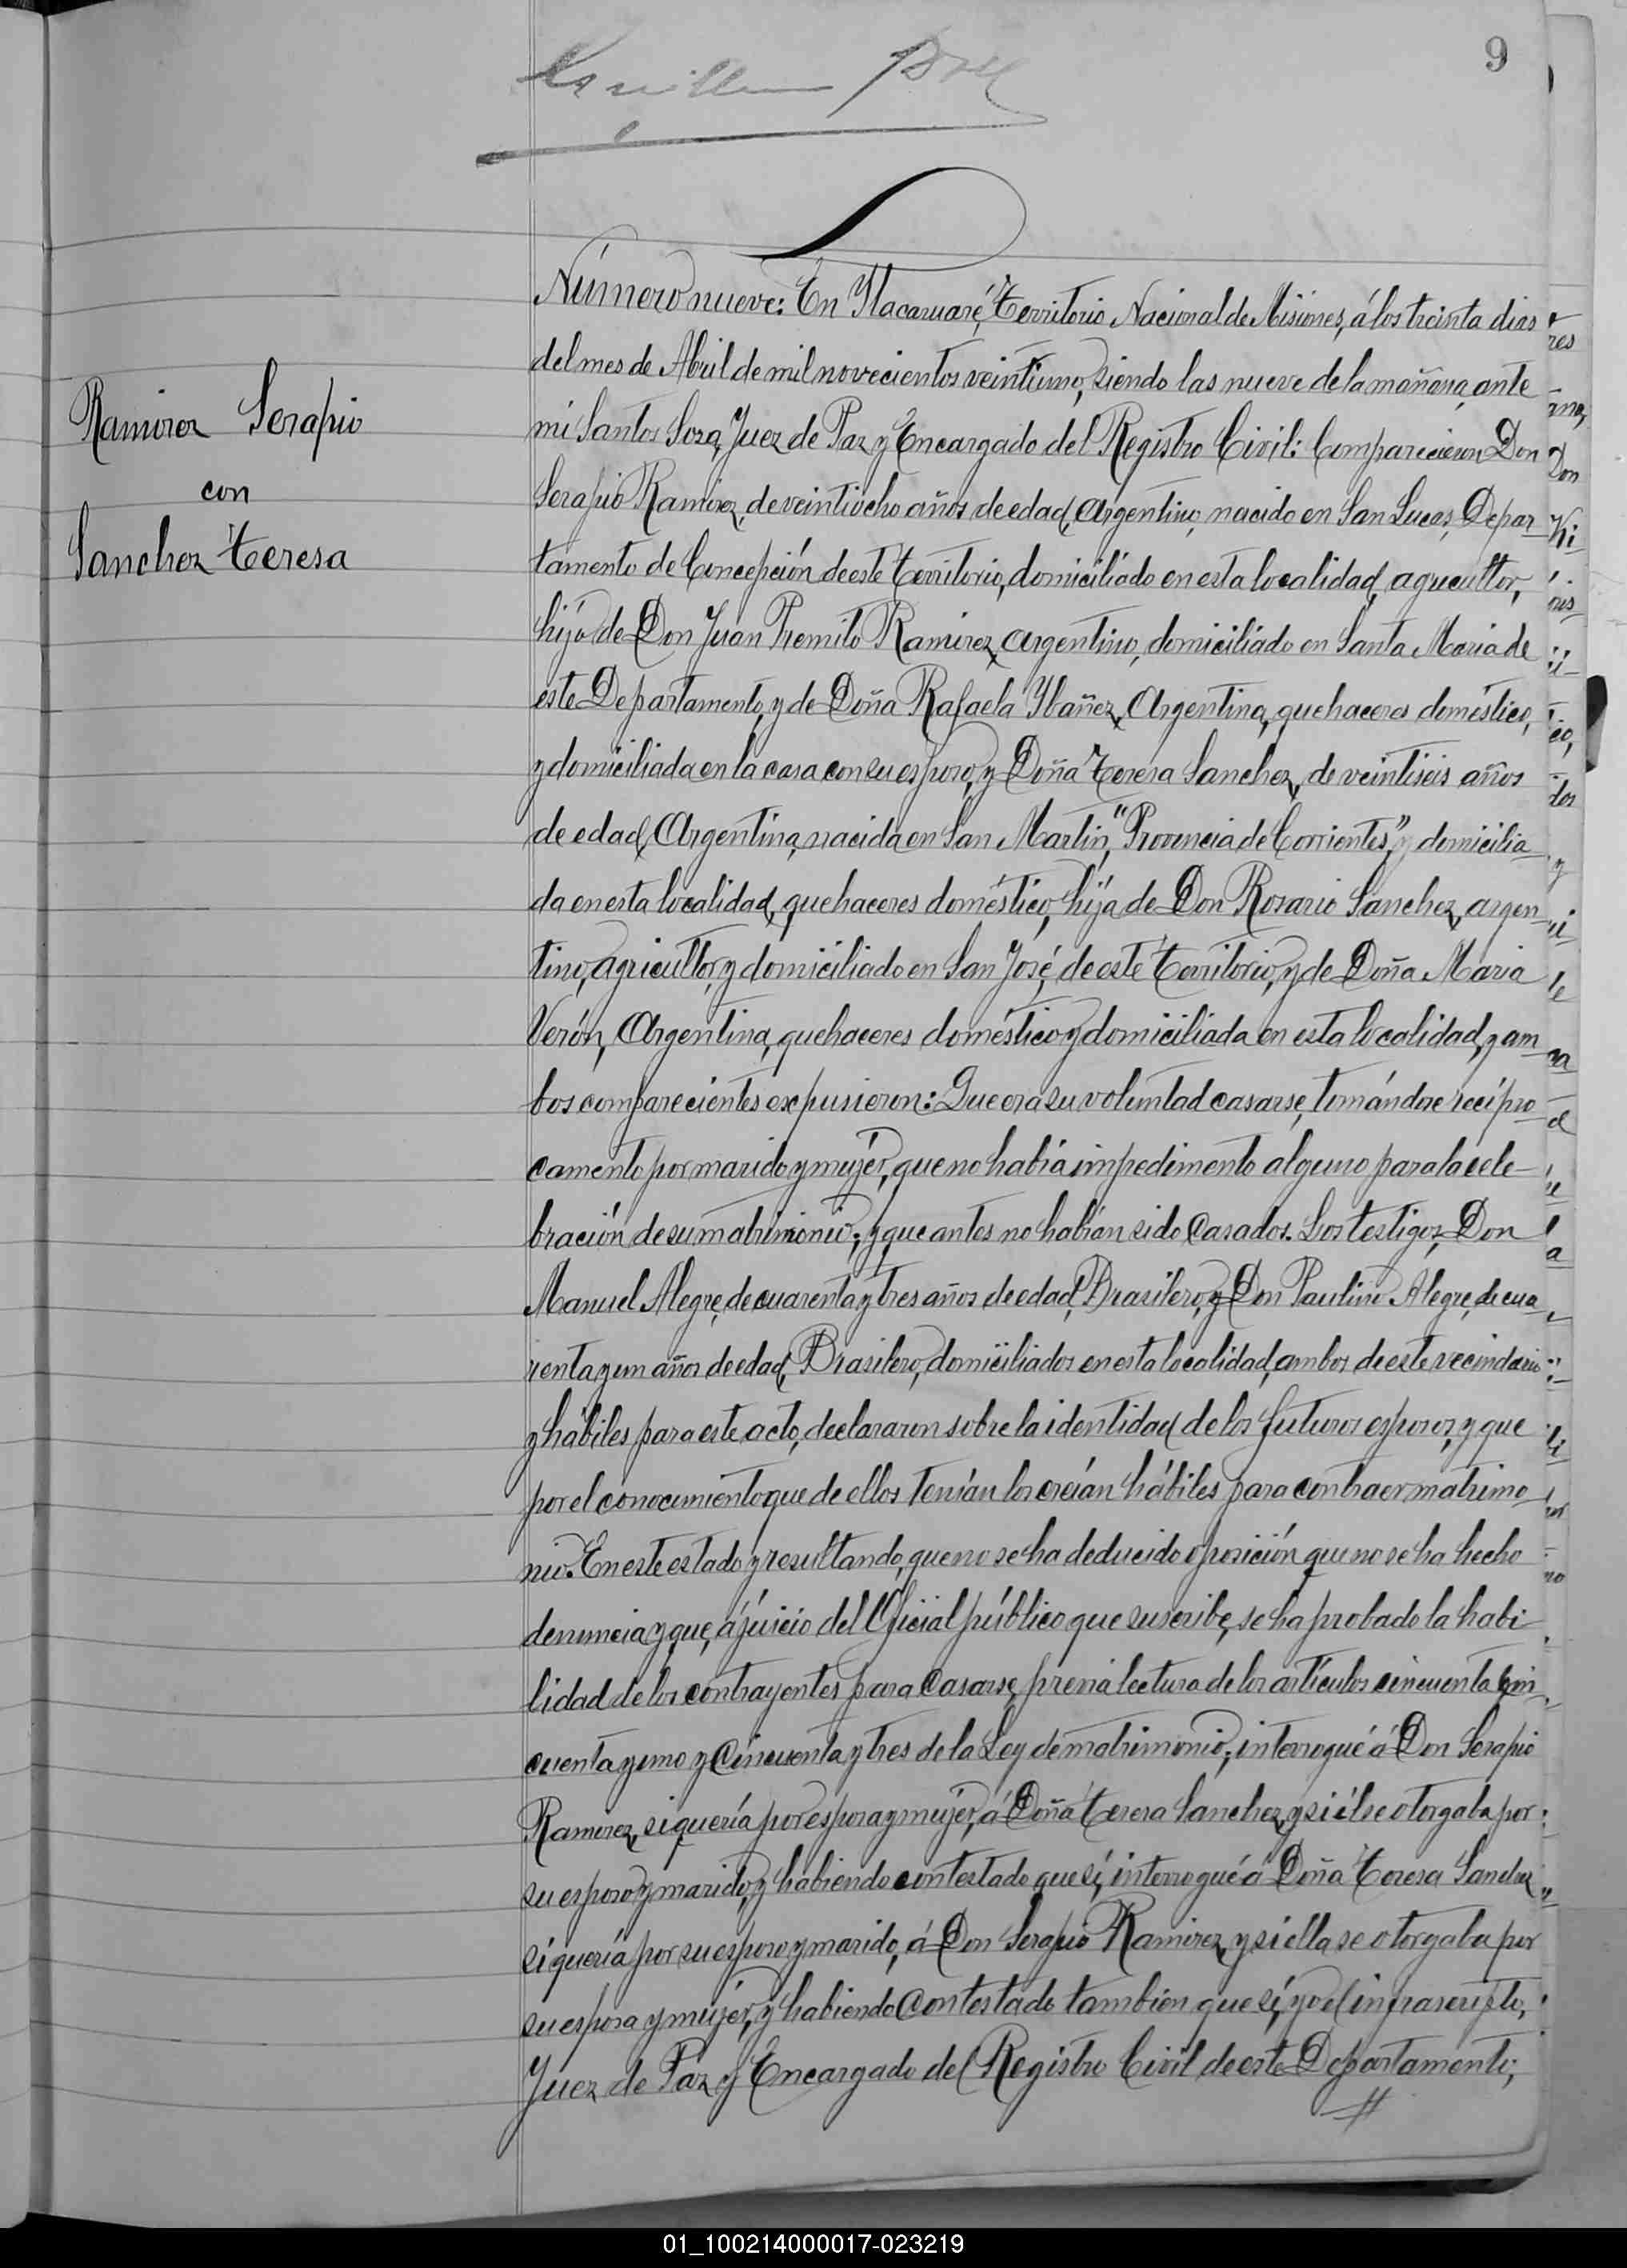 9
Número nueve: En Itacaruaré, Territorio Nacional de Misiones, á los treinta dias
del mes de Abril de mil novecientos veintiuno, siendo las nueve de la mañana, ante
mi Santos Sosa, Juez de Paz y Encargado del Registro Civil: Comparecieron Don
Serapio Ramirez, de veintiocho años de edad, Argentino, nacido en San Lucas, Depar
tamento de Concepción de este Territorio, domiciliado en esta localidad, agricultor,
hijo de Don Juan Ramirez, Argentino, domiciliado en Santa Maria de
este Departamento, y de Doña Rafaela Ybañez, Argentina, quehaceres doméstico,
y domiciliada en la casa con su esposo, y Doña Teresa Sanchez, de veintiseis años
de edad, Argentina, nacida en San Martin, "Provincia de Corrientes", y domicilia
da en esta localidad, quehaceres doméstico, hija de Don Rosario Sanchez, argen
tino, agricultor, y domiciliado en San José, de este Territorio, y de Doña Maria
Verón, Argentina, quehaceres doméstico y domiciliada en esta localidad, y am
bos comparecientes expusieron: Que era su voluntad casarse, tomándose recípro
camente por marido y mujer, que no había impedimento alguno para la cele
bración de su matrimonio; y que antes no habían sido casados. Los testigos, Don
Manuel Alegre, de cuarenta y tres años de edad, Brasilero, y Don Paulino Alegre, de cua
renta y un años de edad, Brasilero, domiciliados en esta localidad, ambos de este vecindario
y hábiles para este acto, declararon sobre la identidad de los futuros esposos, y que
por el conocimiento que de ellos tenían los creían hábiles para contraer matrimo
nio. En este estado y resultando, que no se ha deducido oposición que no se ha hecho
denuncia y que, á juicio del Oficial público que suscribe, se ha probado la habi
lidad de los contrayentes para casarse, previa lectura de los artículos cincuenta cin
cuenta y uno y cincuenta y tres de la Ley de matrimonio; interrogué á Don Serapio
Ramirez, si quería por esposa y mujer, á Doña Teresa Sanchez, y si él se otorgaba por
su esposo y marido, y habiendo contestado que sí, interrogué á Doña Teresa Sanchez
si quería por su esposo y marido, á Don Serapio Ramirez, y si ella se otorgaba por
su esposa y mujer, y habiendo contestado tambien que sí, yo el infrascripto,
Juez de Paz y Encargado del Registro Civil de este Departamento;
Ramirez Serapio
con
Sanchez Teresa
01_100214000017-023219